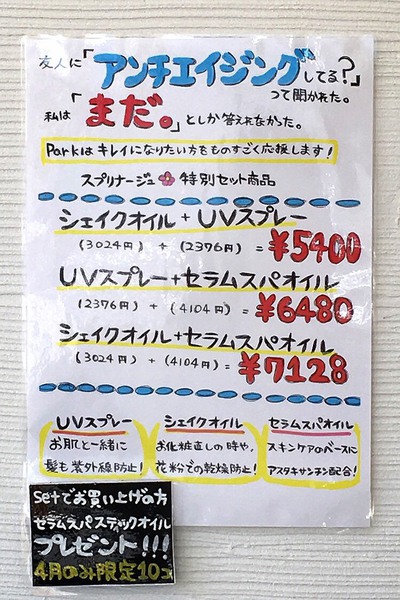 友人に「アンチエイジングしてる?」
って聞かれた。
私は「まだ。」としか答えれなかった。
Parkは キレイになりたい方をものすごく応援します!
スプリナージュ 特別セット商品
シェイクオイル + UVスプレー
(3024円) + (2396円) = ¥5400
UVスプレー+セラムスパオイル
(2376円) + (4104円) = ¥6480
シェイクオイル+セラムスパオイル
(3024円) + (4104円) = ¥7128
UVスプレー
お肌と一緒に
髪も紫外線防止!
シェイクオイル
お化粧直しの時や、
花粉での乾燥防止!
セラムスパオイル
スキンケアのベースに
アスタキサンチン配合!
setでお買い上げの方
セラムスパスティックオイル
プレゼント!!!
4月のみ限定10コ